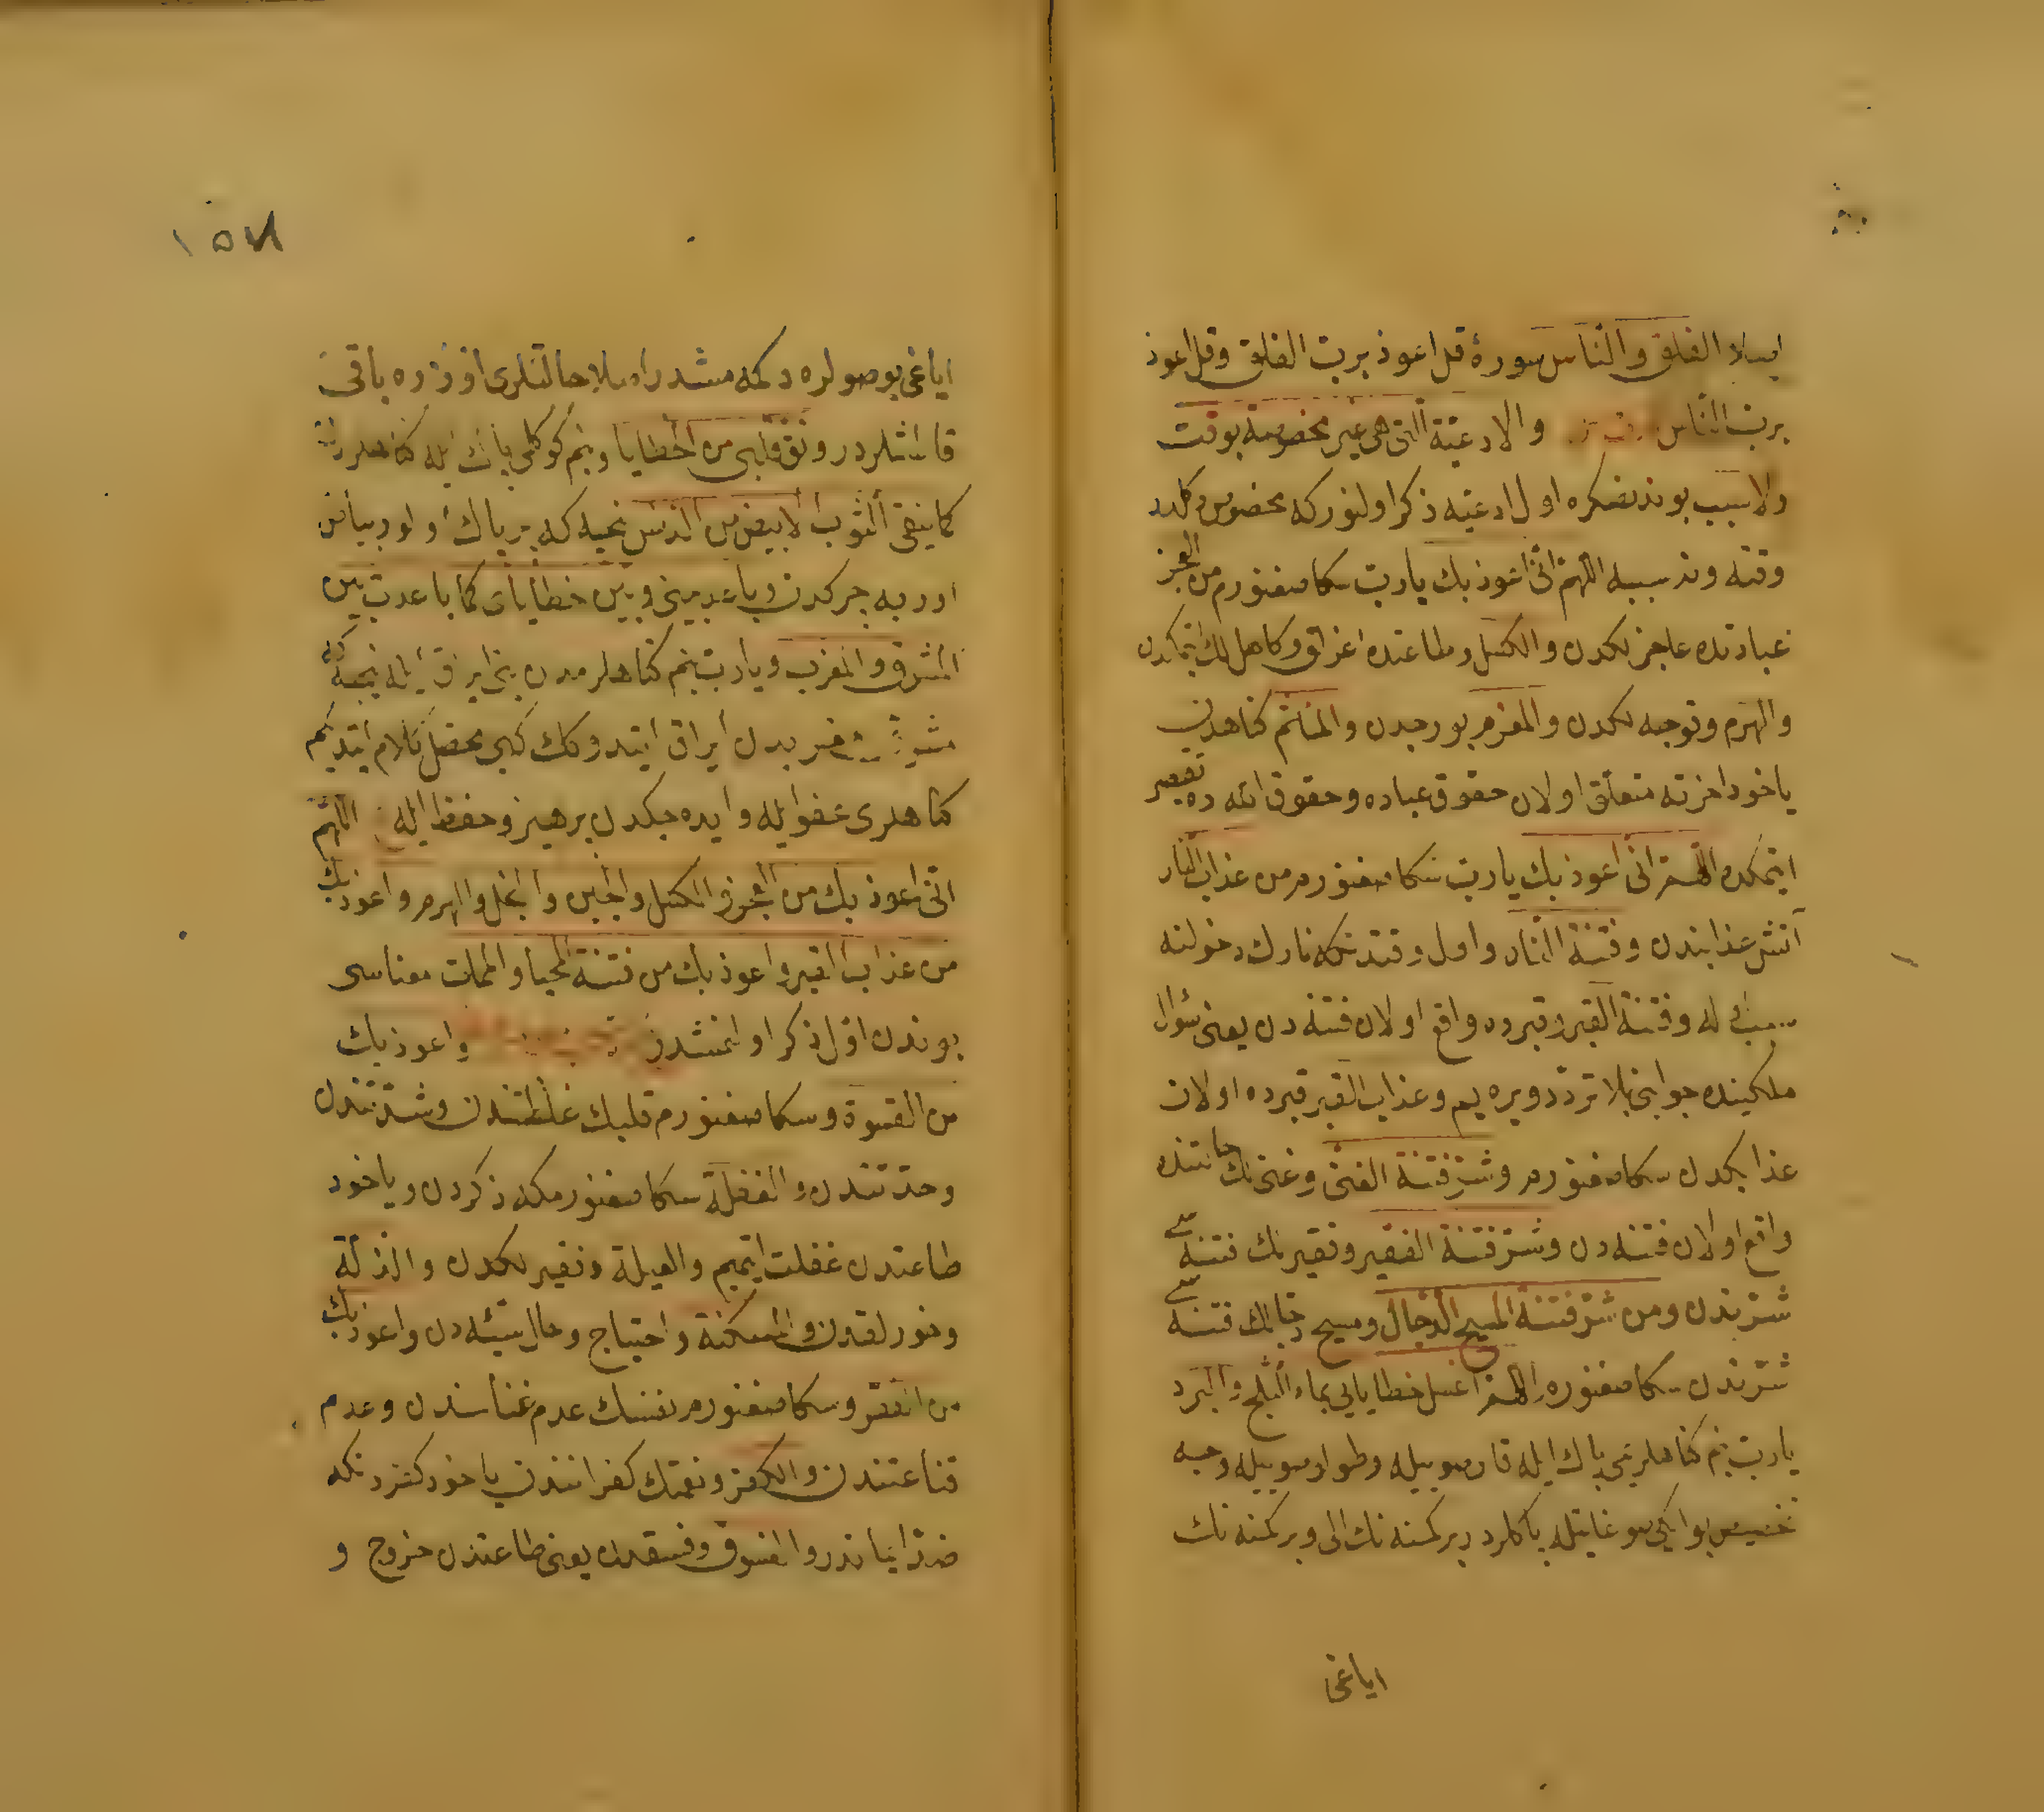 الفلق والناس سورهٔ قل اعوذ برب الفلق وقل اعوذ
برب الناس والادعية التى هى غير مخصوصة بوقت
ولا سبب بوندنصكره اول ادعيه ذكر اولنور كه مخصوص دكلدر
وقته ونه سببه اللهم انى اعوذ بك يا رب سكا صغنورم من العجز
عبادتده عاجزلكدن والكسل وطاعتده وكاهللك ايتمكدن
والهرم وقوجه لكدن والمغرم بورجدن والمأثم كناهدن
ياخود اخرته متعلق اولان حقوق عباده وحقوق الله ده تقصير
ايتمكدن اللهم انى اعوذ بك يا رب سكا صغنورم من عذاب النار
آتش عذابندن وفتنة النار واول فتنه دنكه نارك دخولنه
سبب اوله وفتنة القبر وقبرده واقع اولان فتنه دن يعنى سؤال
ملكينده جوابنى بلا تردد ويره يم وعذاب القبر قبرده اولان
عذابكدن سكا صغنورم وشر فتنة الغنى وغنى نك حالتنده
واقع اولان فتنه دن وشر فتنة الفقير وفقيرنك فتنه سى
شرندن ومن شر فتنة المسيح الدجال ومسيح دجالك فتنه سى
شرندن سكا صغنورم اللهم اغسل خطاياى بماء الثلج والبرد
يا رب بنم كناهلريمى پاك ايله قار صوييله وطولو صوييله وجه
تخصيص بو ايكى صو غايتله پاكلردر بر كمسنه نك الى وبر كمسنه نك
اياغى
١٥٧
اياغى بو صولره دكمه مشدر اصلا حالتلرى اوزره باقى
قالمشلردر ونق قلبى من الخطايا وبنم كوكلمى پاك ايله كناهلردن
كما ينقى الثوب الابيض من الدنس نجه كه پاك اولور بياض
اوربه چركدن وباعد بينى وبين خطاياى كما باعدت بين
المشرق والمغرب ويا رب بنم كناهلرمدن بنى ايراق ايله نجه كه
مشرق مغربدن ايراق ايتدوكك كبى محصل كلام ايتديكم
كناهلرى عفو ايله وايده جكدن پرهيز وحفظ ايله اللهم
انى اعوذ بك من العجز والكسل والجبن والبخل والهرم واعوذ بك
من عذاب القبر واعوذ بك من فتنة المحيا والممات معناسى
بوندن اول ذكر اولنمشدر واعوذ بك
من القسوة وسكا صغنورم قلبك غلظتندن وشدتندن
وحدتندن والغفلة سكا صغنورمكه ذكردن وياخود
طاعتدن غفلت ايتميم والعيلة وفقيرلكدن والذلة
وخورلقدن والمسكنة واحتياج وحال سيئه دن واعوذ بك
من الفقر وسكا صغنورم نفسك عدم غناسندن وعدم
قناعتندن والكفر ونعمتك كفرانندن ياخود كفردنكه
ضد ايماندر والفسوق وفسقدن يعنى طاعتدن خروج و